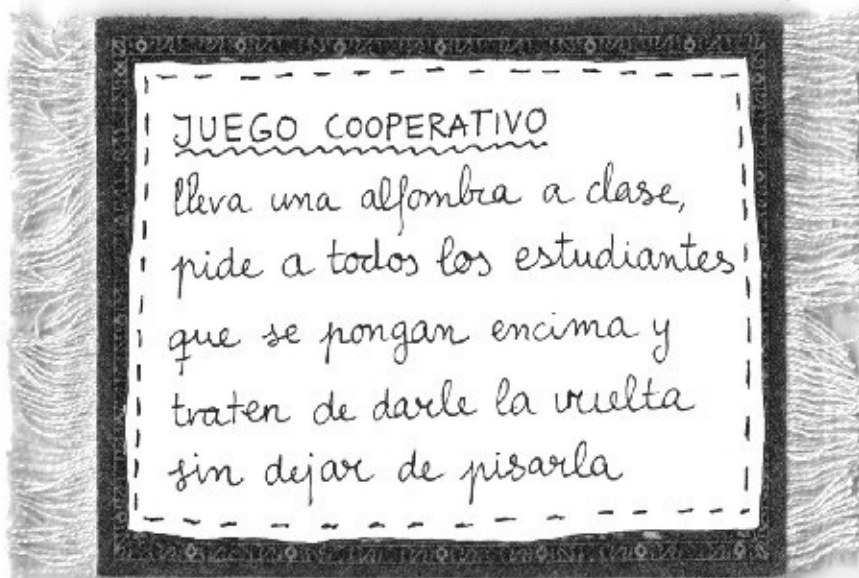 JUEGO COOPERATIVO
lleva una alfombra a clase,
pide a todos los estudiantes
que se pongan encima y
traten de darle la vuelta
sin dejar de pisarla